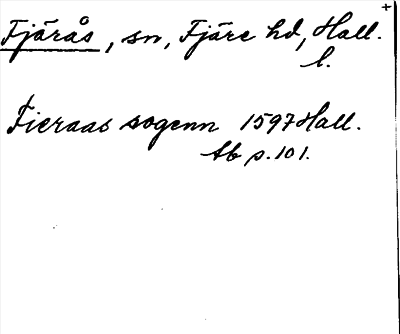 Fjärås, sn, Fjäre hd, Hall.
l.
Fieraas sogenn 1597 Hall.
Åb p. 101.